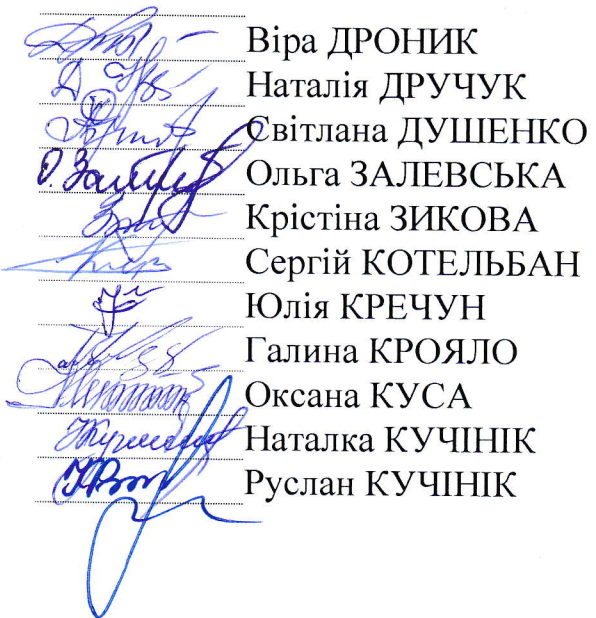 Віра ДРОНИК
Наталія ДРУЧУК
Світлана ДУШЕНКО
Ольга ЗАЛЕВСЬКА
Крістіна ЗИКОВА
Сергій КОТЕЛЬБАН
Юлія КРЕЧУН
Галина КРОЯЛО
Оксана КУСА
Наталка КУЧІНІК
Руслан КУЧІНІК